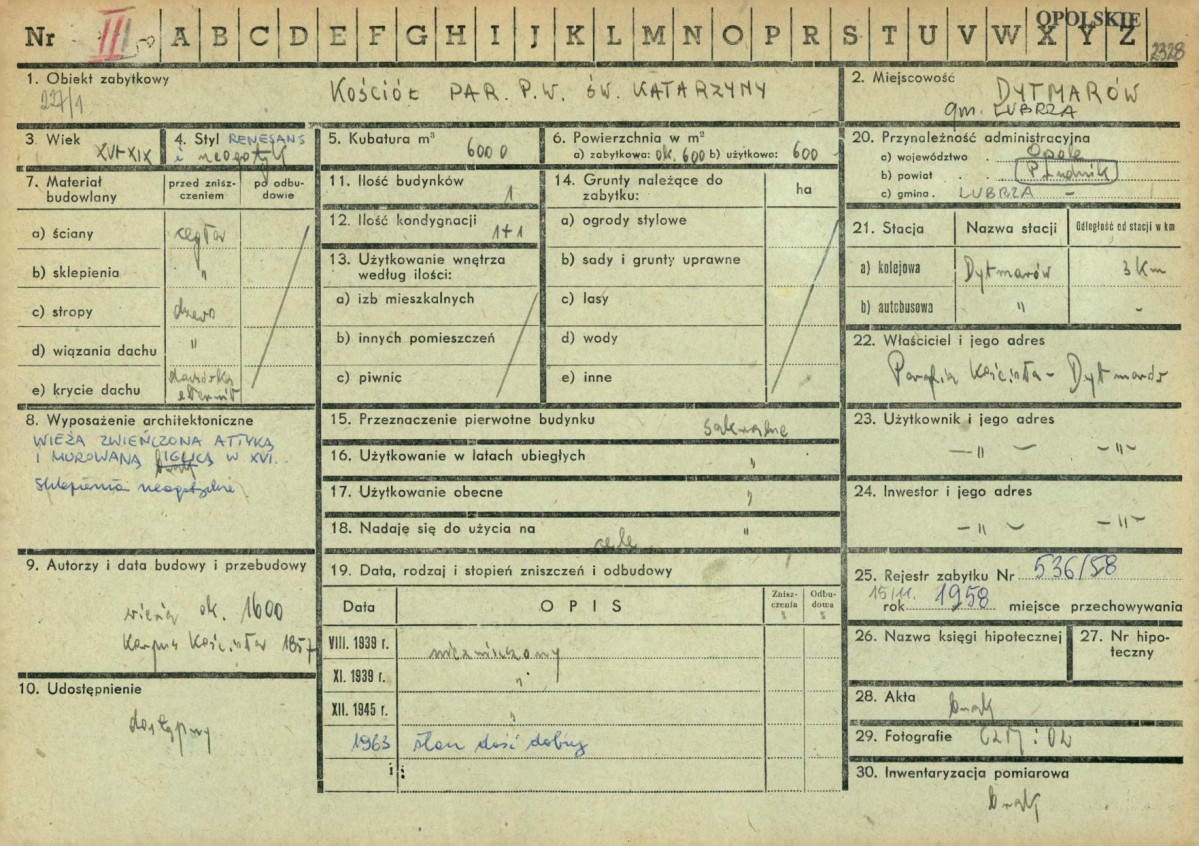 OPOLSKIE
Nr III A B C D E F G H I J K L M N O P R S T U V W X Y Z 2328
1. Obiekt zabytkowy
227/1
KOŚCIÓŁ PAR. P.W. ŚW. KATARZYNY
2. Miejscowość
DYTMARÓW
gm. LUBRZA
3 Wiek
XVI-XIX
4. Styl RENESANS
i neogotyk
5. Kubatura m³
6000
6. Powierzchnia w m²
a) zabytkowa: ok. 600 b) użytkowa: 600
7. Materiał budowlany
przed zniszczeniem
po odbudowie
a) ściany cegła
b) sklepienia "
c) stropy drewo
d) wiązania dachu "
e) krycie dachu dachówka
eternit
8. Wyposażenie architektoniczne
WIEŻA ZWIEŃCZONA ATTYKĄ
I MUROWANĄ IGLICĄ W XVI.
brak
Sklepienia neogotyckie
9. Autorzy i data budowy i przebudowy
wieża ok. 1600
Korpus Kościoła 1857
10. Udostępnienie
dostępny
11. Ilość budynków
1
12. Ilość kondygnacji
1+1
13. Użytkowanie wnętrza
według ilości:
a) izb mieszkalnych
b) innych pomieszczeń
c) piwnic
14. Grunty należące do
zabytku:
ha
a) ogrody stylowe
b) sady i grunty uprawne
c) lasy
d) wody
e) inne
15. Przeznaczenie pierwotne budynku
sakralne
16. Użytkowanie w latach ubiegłych
"
17. Użytkowanie obecne
"
18. Nadaję się do użycia na
cele "
19. Data, rodzaj i stopień zniszczeń i odbudowy
Data OPIS Zniszczenia % Odbudowa %
VIII. 1939 r. niezniszczony
XI. 1939 r. "
XII. 1945 r. "
1963 stan dość dobry
20. Przynależność administracyjna
a) województwo . Opole
b) powiat . . Prudnik
c) gmina . LUBRZA -
21. Stacja Nazwa stacji Odległość od stacji w km
a) kolejowa Dytmarów 3 km
b) autobusowa " -
22. Właściciel i jego adres
Parafia Kościoła - Dytmarów
23. Użytkownik i jego adres
- " - - " -
24. Inwestor i jego adres
- " - - " -
25. Rejestr zabytku Nr 536/58
15/11.
rok 1958 miejsce przechowywania
26. Nazwa księgi hipotecznej
27. Nr hipoteczny
28. Akta
brak
29. Fotografie
30. Inwentaryzacja pomiarowa
brak